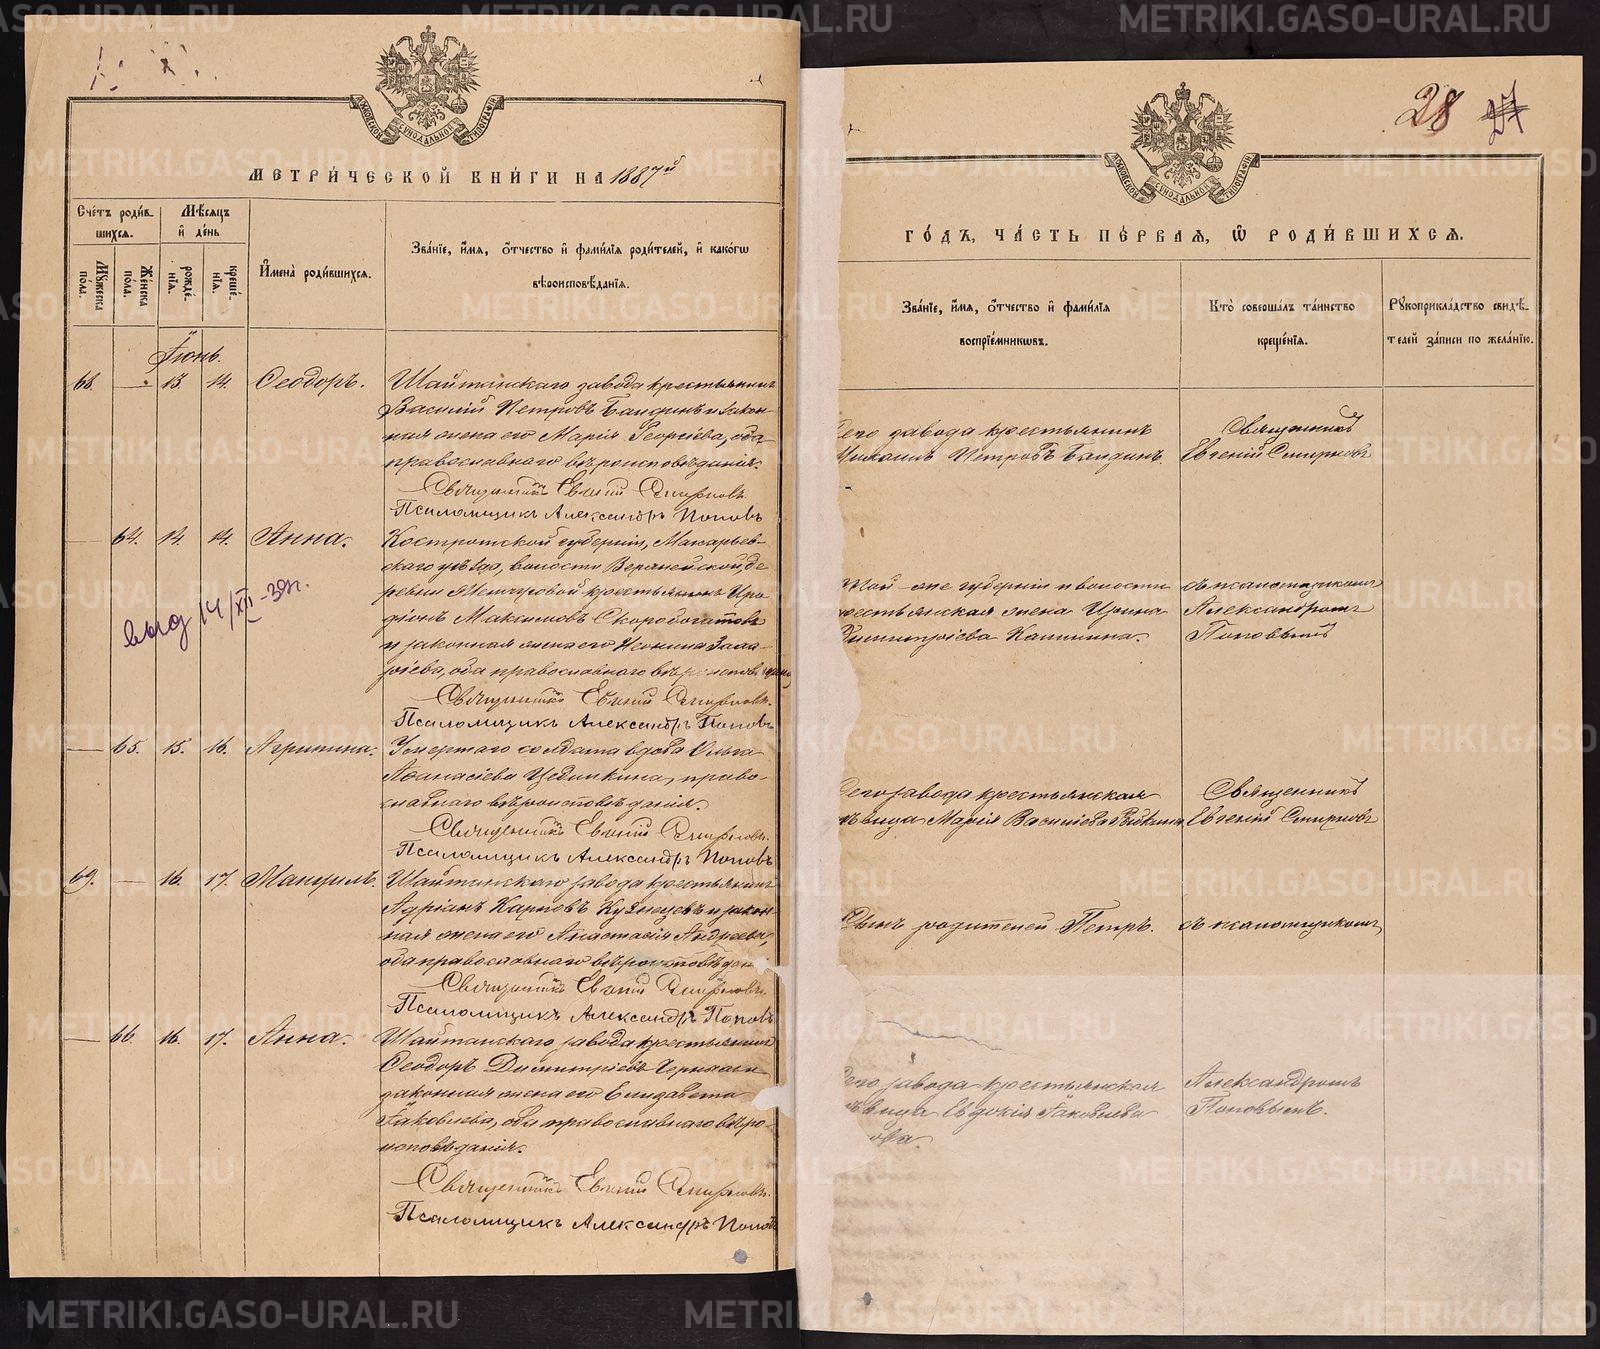 МЕТРИЧЕСКОЙ КНИГИ НА 1887й
Счетъ родив-
шихся.
Мѣсяцъ
и день
Мужеска пола.
Женска пола.
рожде-
нія.
креще-
нія.
Имена родившихся.
Званіе, имя, отчество и фамилія родителей, и какогѡ
вѣроисповѣданія.
Іюнь.
68. — 13. 14. Ѳеодоръ.
Шайтанскаго завода крестьянинъ
Василій Петровъ Бандинъ и закон-
ная жена его Марія Георгіева, оба
православнаго вѣроисповѣданія.
Священникъ Евгеній Смирновъ.
Псаломщикъ Александръ Поповъ
— 64. 14. 14. Анна.
Костромской губерніи, Макарьев-
скаго уѣзда, волости
деревни крестьянинъ Иро-
діонъ Максимовъ Скоробогатовъ
и законная жена его
оба православнаго
Священникъ Евгеній Смирновъ.
Псаломщикъ Александръ Поповъ
выд 14/XII-39г.
— 65. 15. 16. Агрипина.
Умершаго солдата вдова Ольга
Аѳанасіева право-
славнаго вѣроисповѣданія.
Священникъ Евгеній Смирновъ.
Псаломщикъ Александръ Поповъ
69. — 16. 17. Мануилъ.
Шайтанскаго завода крестьянинъ
Адріанъ Карповъ Кузнецовъ и закон-
ная жена его Анастасія Андреева,
оба православнаго
Священникъ Евгеній Смирновъ.
Псаломщикъ Александръ Поповъ
— 66. 16. 17. Анна.
Шайтанскаго завода крестьянинъ
Ѳеодоръ Димитріевъ
законная жена его Елизавета
Іаковлева, оба православнаго вѣро-
исповѣданія.
Священникъ Евгеній Смирновъ.
Псаломщикъ Александръ Поповъ
28 27
ГОДЪ, ЧАСТЬ ПЕРВАЯ, Ѡ РОДИВШИХСЯ.
Званіе, имя, отчество и фамилія
воспріемникѡвъ.
Кто совершалъ таинство
крещенія.
Рукоприкладство свидѣ-
телей записи по желанію.
Сего завода крестьянинъ
Михаилъ Петровъ Бандинъ.
Священникъ
Евгеній Смирновъ
Той-же губерніи и волости
крестьянская жена Ирина
Димитріева Капшина.
съ псаломщикомъ
Александромъ
Поповымъ
Сего завода крестьянская
дѣвица Марія Василіева
Священникъ
Евгеній Смирновъ
Сынъ родителей Петръ.
съ псаломщикомъ
Сего завода крестьянская
дѣвица Евдокія Іаковлева
Александромъ
Поповымъ.
METRIKI.GASO-URAL.RU